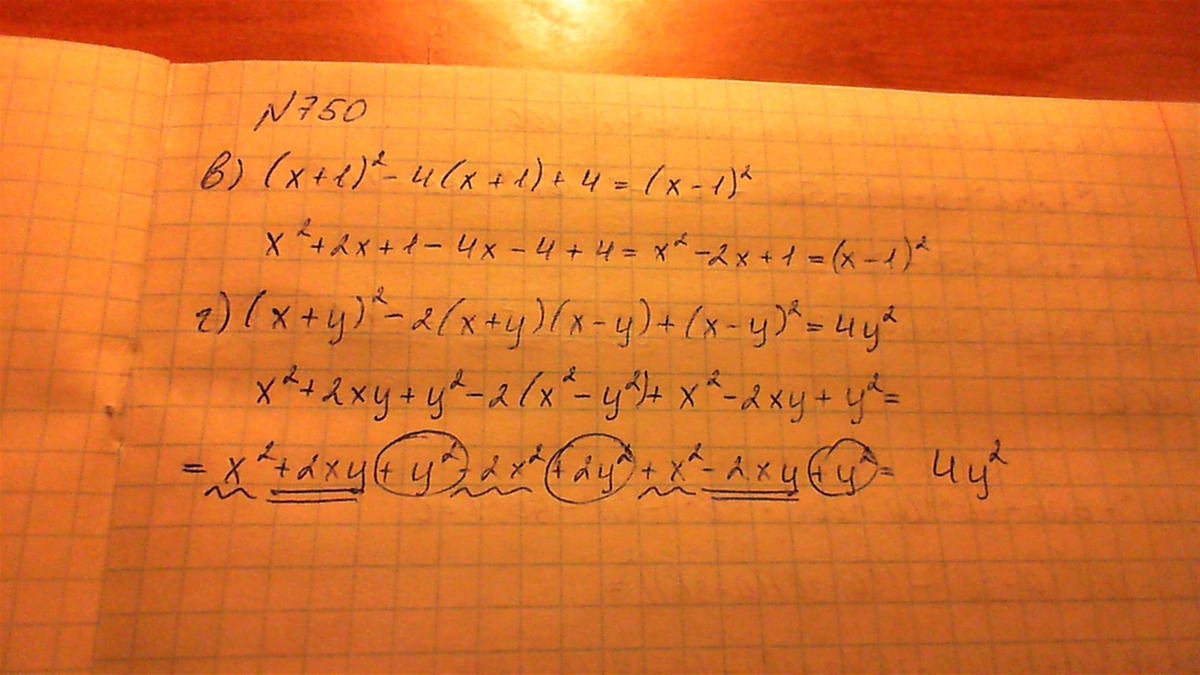 N750
в) (x+1)² - 4(x+1) + 4 = (x-1)²
x² + 2x + 1 - 4x - 4 + 4 = x² - 2x + 1 = (x-1)²
г) (x+y)² - 2(x+y)(x-y) + (x-y)² = 4y²
x² + 2xy + y² - 2(x² - y²) + x² - 2xy + y² =
= x² + 2xy + y² - 2x² + 2y² + x² - 2xy + y² = 4y²